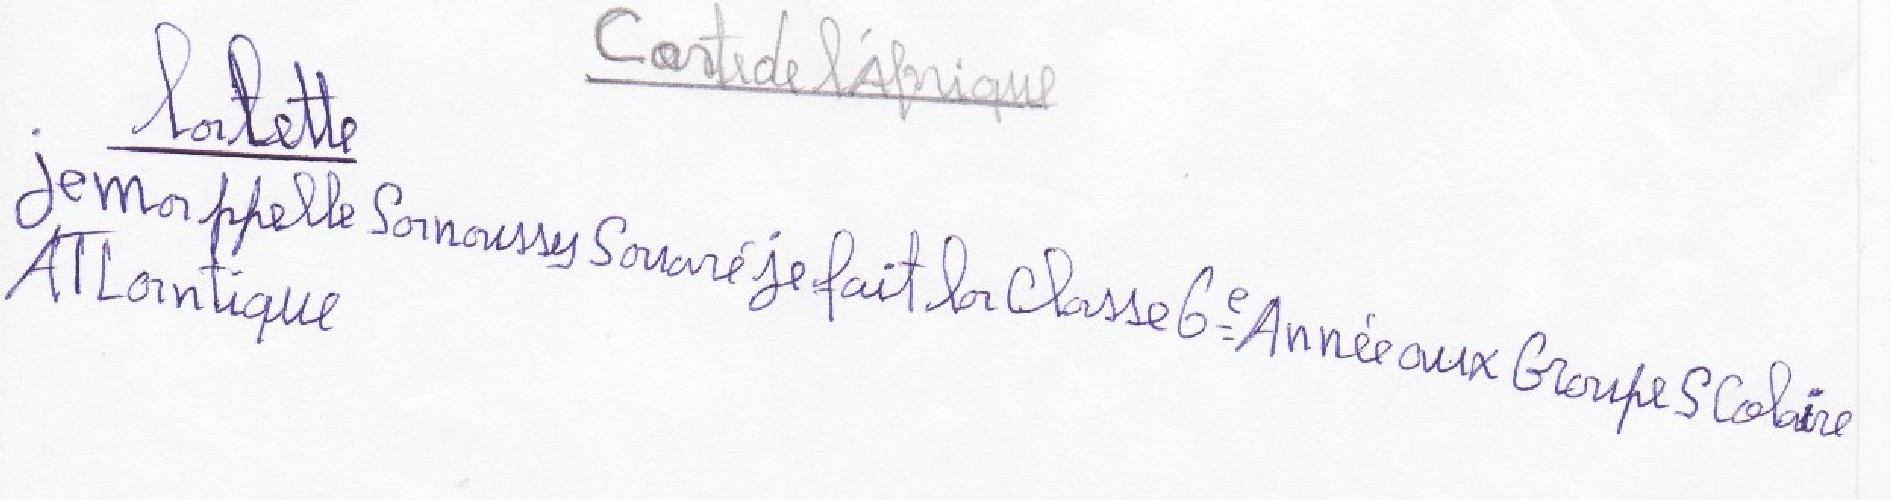 Carte de l'Afrique
la lette
je mappelle Sanoussy Souaré je fait la Classe 6e Année aux Groupe SColaire
ATLantique